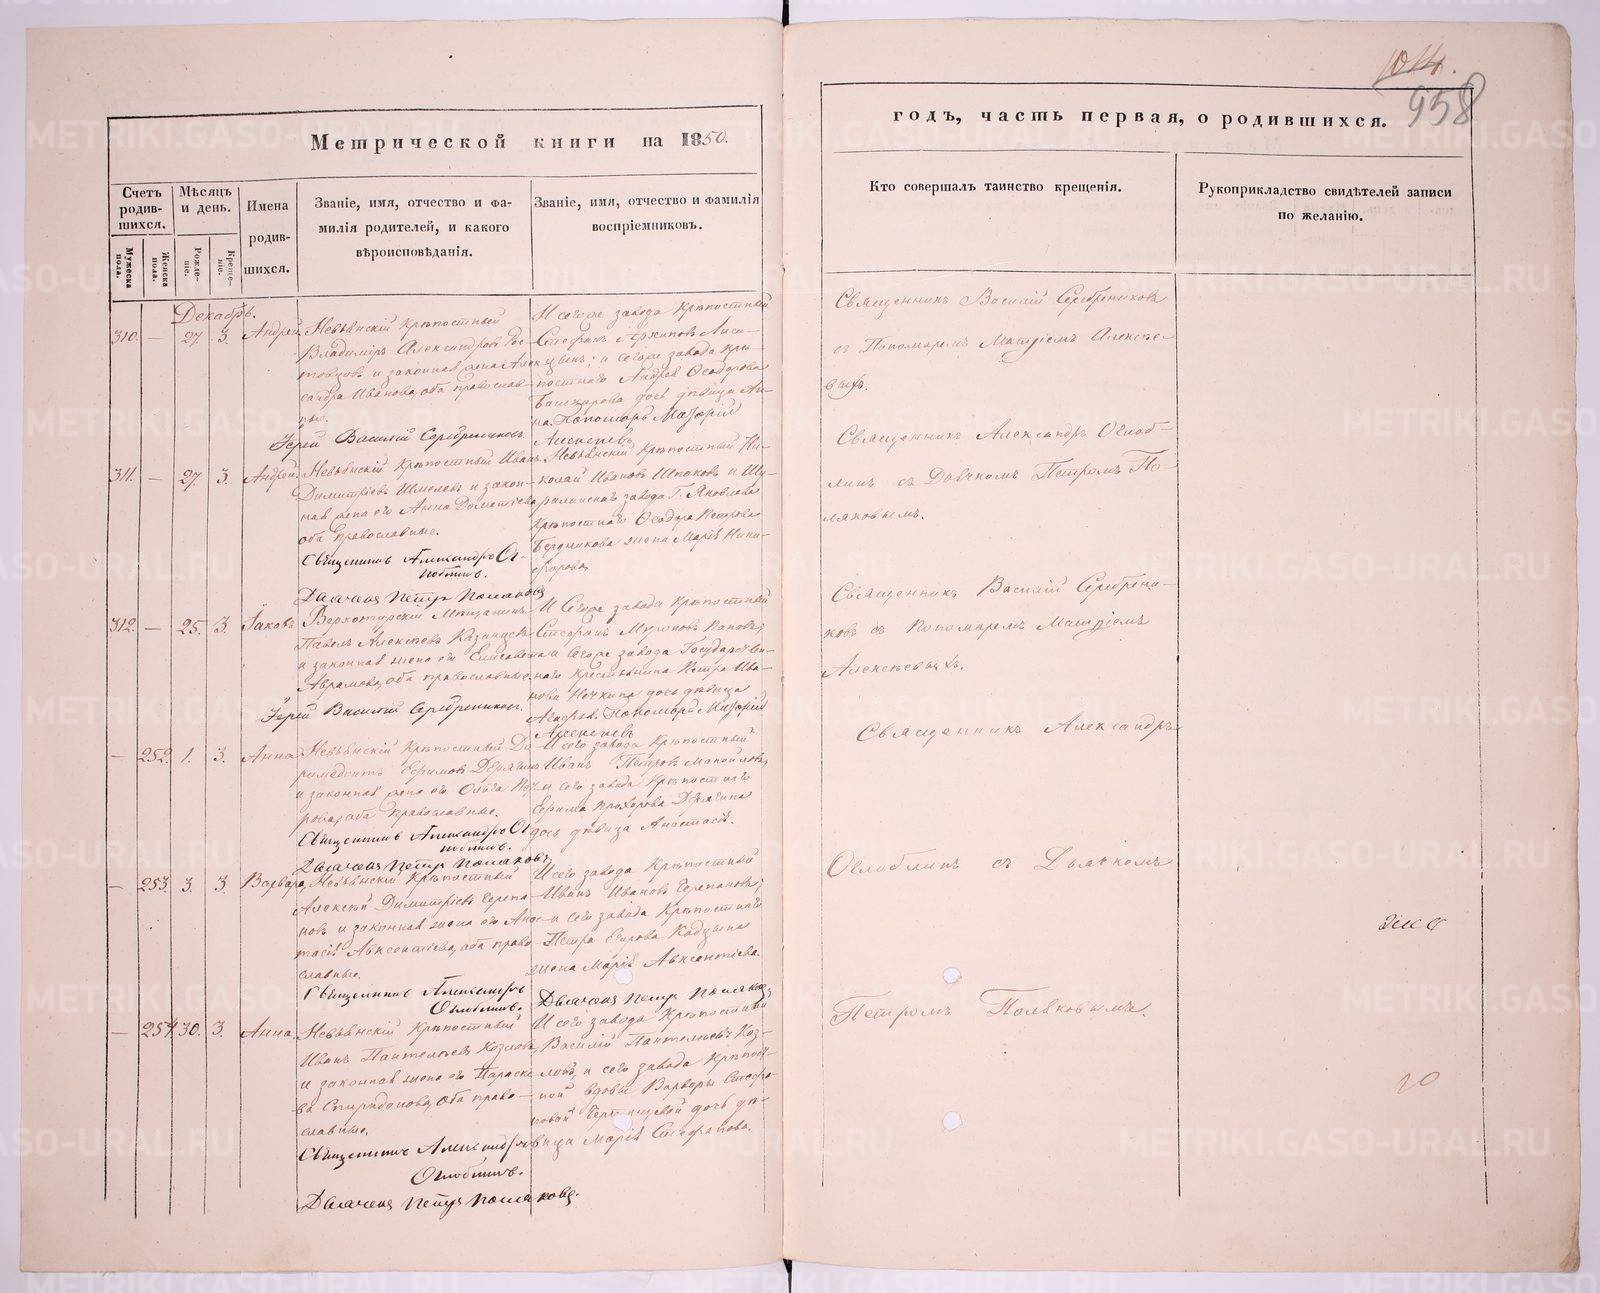 1014.
958
Метрической книги на 1850.
годъ, часть первая, о родившихся.
Счетъ родив-шихся.
Мужеска пола.
Женска пола.
Мѣсяцъ и день.
Рожде-ніе.
Креще-ніе.
Имена
родив-
шихся.
Званіе, имя, отчество и фа-
милія родителей, и какого
вѣроисповѣданія.
Званіе, имя, отчество и фамилія
воспріемниковъ.
Кто совершалъ таинство крещенія.
Рукоприкладство свидѣтелей записи
по желанію.
Декабрь.
310. — 27. 3. Андрей.
Невьянскій Крѣпостный
Владиміръ Александровъ
и законная жена
Иванова, оба православ-
ные.
Іерей Василій Серебренниковъ
И сего же завода Крѣпостный
Стефанъ
и сего же завода крѣ-
постнаго Андрея Ѳеодорова
Башкирова дочь дѣвица Ан-
на. Пономарь Матѳій
Алексѣевъ
Священникъ Василій Серебрениковъ
съ Пономаремъ Матѳіемъ Алексѣе-
вымъ.
311. — 27 3. Андрей.
Невьянскій Крѣпостный Иванъ
Димитріевъ Шмелевъ и закон-
ная жена его Анна Дометіева
оба Православные.
Священникъ Александръ Ог-
лоблинъ.
Дьячекъ Петръ Поляковъ
Невьянскій Крѣпостный Ни-
колай Ивановъ и Шу-
ралинскаго завода Г. Яковлева
Крѣпостнаго Ѳеодора Петрова
Бердникова жена Марія Ники-
форова
Священникъ Александръ Оглоб-
линъ съ Дьячкомъ Петромъ По-
ляковымъ.
312. — 25. 3. Іаковъ
Верхотурскій Мѣщанинъ
Павелъ Алексѣевъ Казанцевъ
и законная жена его Елисавета
Аврамова, оба православные.
Іерей Василій Серебренниковъ.
И Сего же завода Крѣпостный
Стефанъ Мироновъ Поповъ;
и Сего же завода Государствен-
наго крестьянина Петра Ива-
нова дочь дѣвица
Пономарь Матѳій
Алексѣевъ
Священникъ Василій Серебрени-
ковъ съ Пономаремъ Матѳіемъ
Алексѣевымъ.
— 252. 1. 3. Анна
Невьянскій Крѣпостный До-
римедонтъ Ефимовъ Дерягинъ
и законная жена его Ольга
оба православные.
Священникъ Александръ Ог-
лоблинъ.
Дьячекъ Петръ Поляковъ
И сего завода Крѣпостный
Иванъ Петровъ Мануиловъ,
и сего завода Крѣпостнаго
Ефима Прохорова Дерягина
дочь дѣвица Анастасія.
Священникъ Александръ
— 253. 3. 3 Варвара
Невьянскій Крѣпостный
Алексѣй Димитріевъ Черепа-
новъ и законная жена его Анас-
тасія Авксентіева, оба право-
славные.
Священникъ Александръ
Оглоблинъ.
И сего завода Крѣпостный
Иванъ Ивановъ Черепановъ;
и сего завода Крѣпостнаго
Петра Егорова
жена Марія Авксентіева.
Дьячекъ Петръ Поляковъ
Оглоблинъ съ Дьячкомъ
— 254. 30. 3. Анна
Невьянскій Крѣпостный
Иванъ Пантелеевъ Козловъ,
и законная жена его Параске-
ва Спиридонова, оба право-
славные.
Священникъ Александръ
Оглоблинъ.
Дьячекъ Петръ Поляковъ.
И сего завода Крѣпостный
Василій Пантелеевъ Коз-
ловъ, и сего завода Крѣпост-
ной вдовы Варвары Стефа-
новой дочь дѣ-
вица Марія Стефанова.
Петромъ Поляковымъ.
METRIKI.GASO-URAL.RU